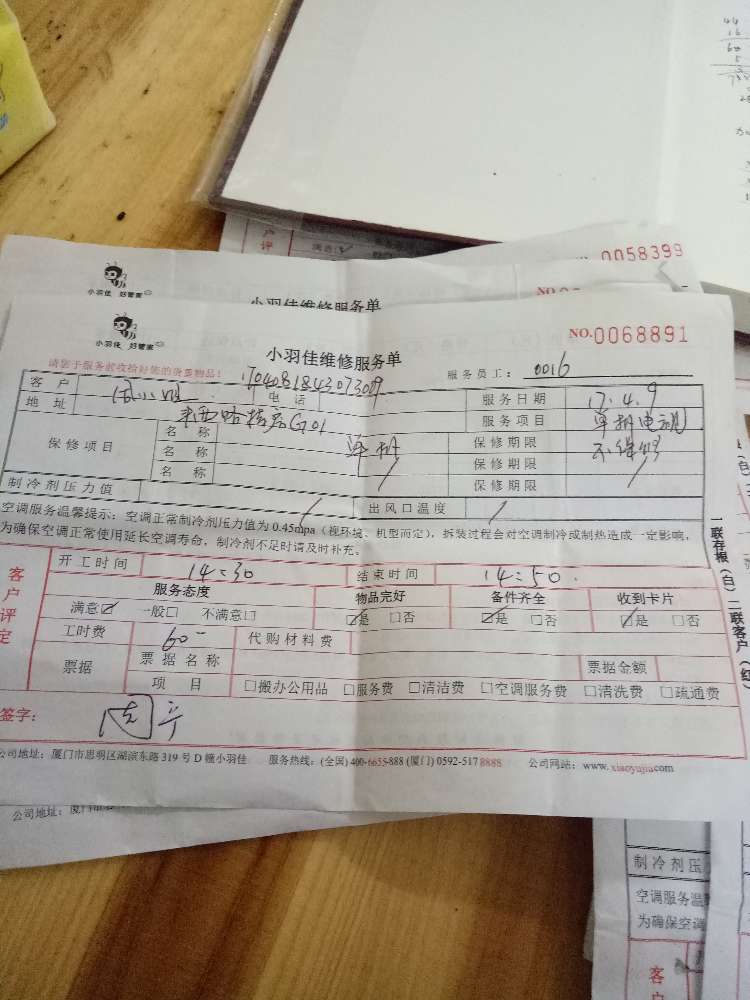 44
16
60
5
满意☑
0058399
小羽佳 好管家
小羽佳维修服务单
NO.
小羽佳 好管家
小羽佳维修服务单
NO.0068891
请您于服务前收拾好您的贵重物品!
服务员工: 0016
客户
电话
服务日期 17.4.9
地址
服务项目
保修项目
名称
保修期限
名称
保修期限
名称
保修期限
制冷剂压力值
出风口温度
空调服务温馨提示: 空调正常制冷剂压力值为 0.45mpa (视环境、机型而定), 拆装过程会对空调制冷或制热造成一定影响,
为确保空调正常使用延长空调寿命, 制冷剂不足时请及时补充。
客户评定
开工时间 14:30 结束时间 14:50.
服务态度 物品完好 备件齐全 收到卡片
满意☑ 一般□ 不满意□ ☑是 □否 ☑是 □否 ☑是 □否
工时费 60- 代购材料费
票据 票据名称 票据金额
项目 □搬办公用品 □服务费 □清洁费 □空调服务费 □清洗费 □疏通费
签字:
公司地址: 厦门市思明区湖滨东路 319 号 D 幢小羽佳 服务热线: (全国) 400-6655-888 (厦门) 0592-517 8888 公司网站: www.xiaoyujia.com
一联存根(白) 二联客户(红)
公司地址: 厦门
制冷剂压
空调服务温
为确保空调
客